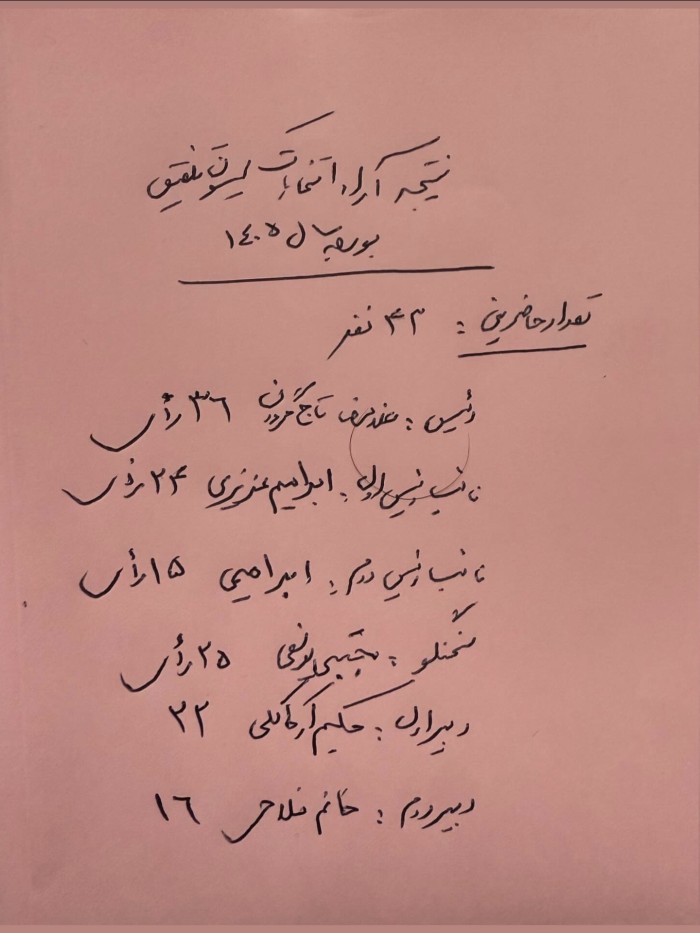 نتیجه آراء انتخابات کمیسیون تلفیق
بودجه سال ۱۴۰۵
تعداد حاضرین : ۴۳ نفر
رئیس : غلامرضا تاجگردون ۳۶ رأی
نائب رئیس اول : ابراهیم عزیزی ۲۴ رأی
نائب رئیس دوم : ابراهیمی ۱۵ رأی
سخنگو : مجتبی یوسفی ۲۵ رأی
دبیر اول : حکیم ارکاکلی ۲۲
دبیر دوم : خانم فلاحی ۱۶